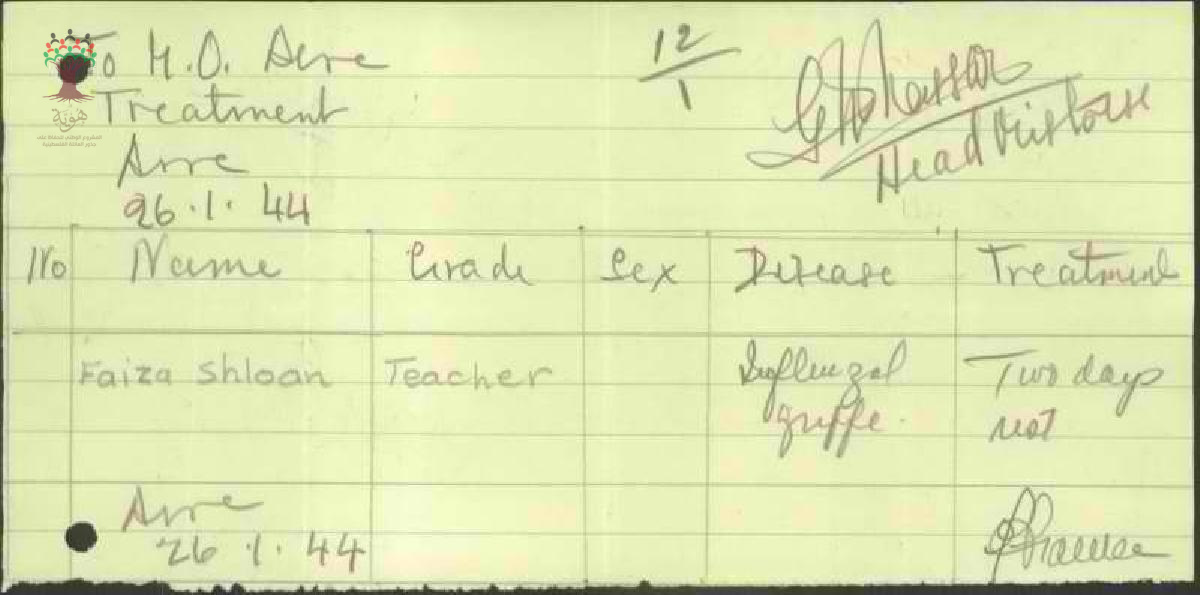 To M.O. Acre
Treatment
Acre
26.1.44
12
1
Head Mistress
No Name Grade Sex Disease Treatment
Faiza Shloan Teacher Influenzal Two days
grippe. rest
Acre
26.1.44
هوية